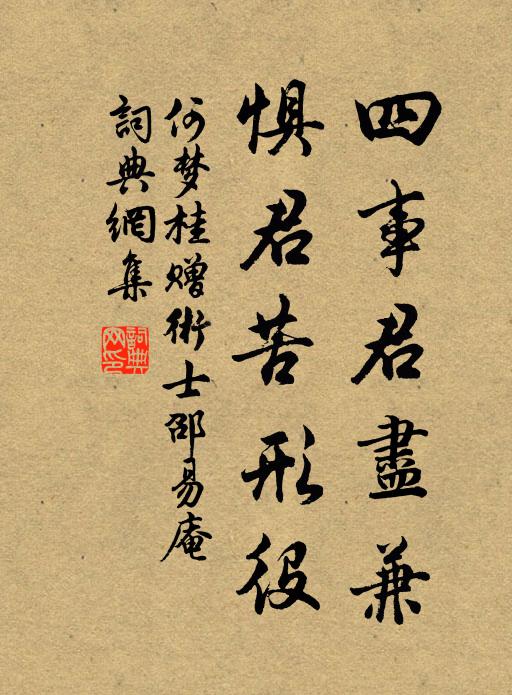 四事君盡兼
惧君苦形役
何梦桂赠術士邵易庵
詞典網集
詞典網印